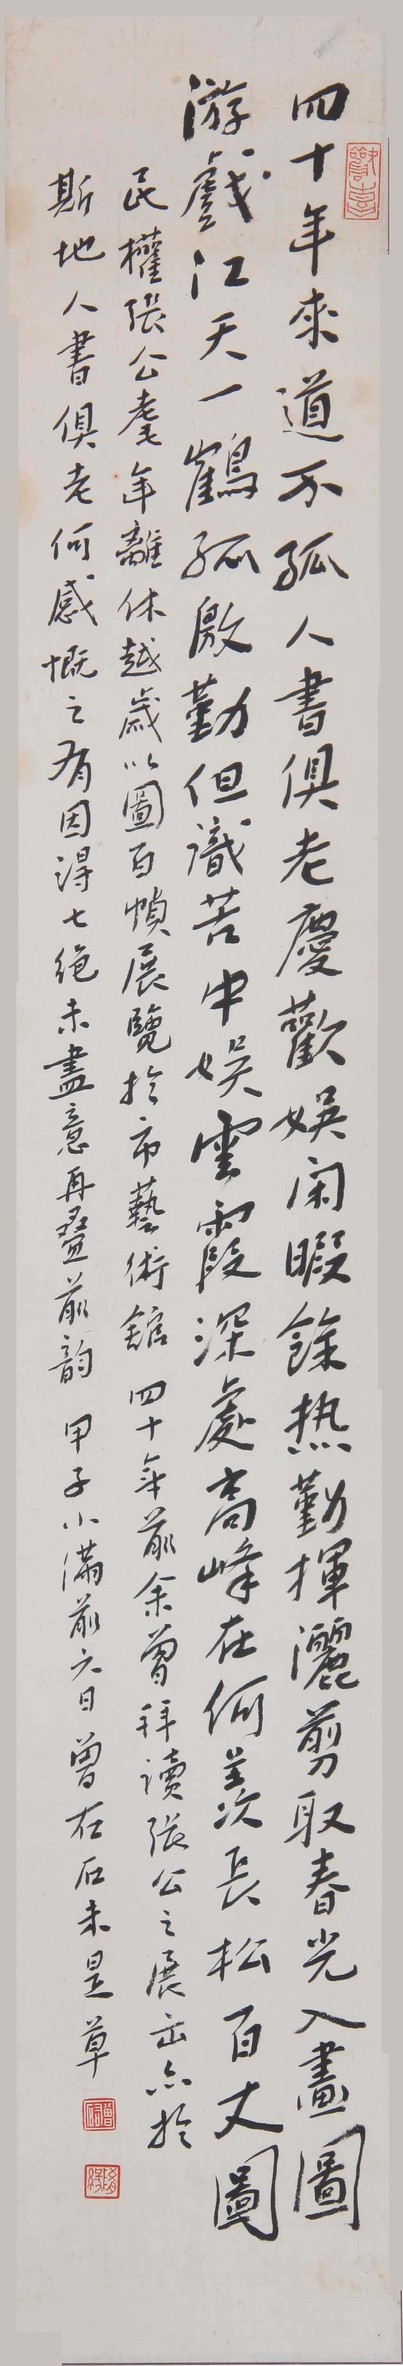 四十年來道不孤人書俱老慶歡娛閑暇餘热勤揮灑剪取春光入畫圖
游戲江天一鶴孤激勤但識苦中娛雲霞深處高峰在何羨長松百丈圖
民權張公耄年離休越歲以圖百幀展覽於市藝術館 四十年前余曾拜讀張公之展出亦於
斯地人書俱老何感慨之有因得七絶未盡意再疊前韵 甲子小滿前六日曾在石未是草